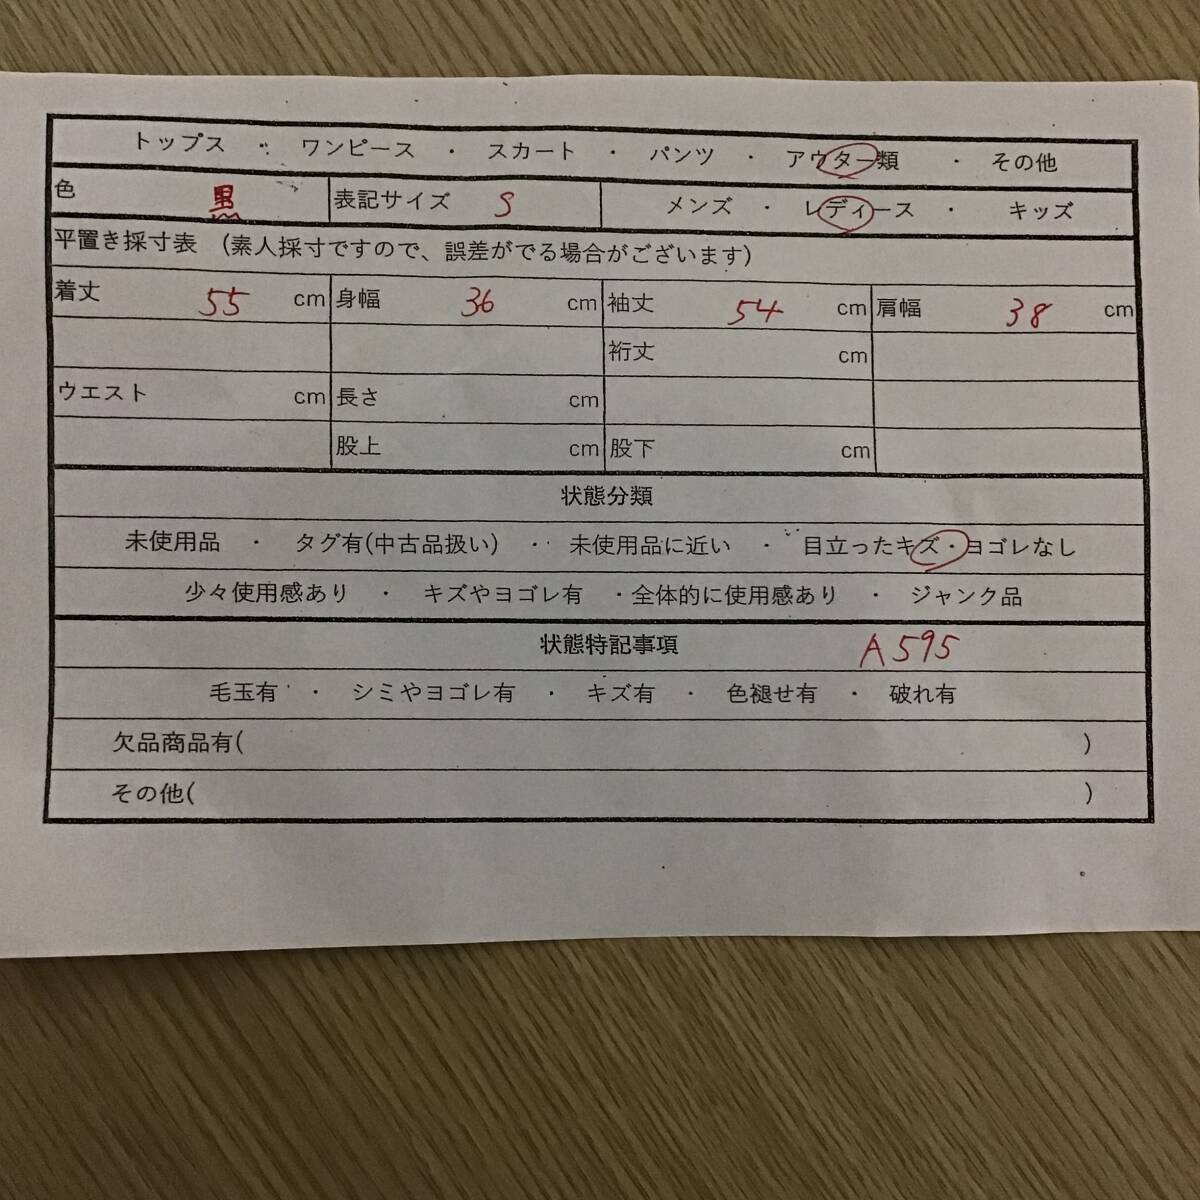 トップス ・ ワンピース ・ スカート ・ パンツ ・ アウター類 ・ その他
色 黒 表記サイズ S メンズ ・ レディース ・ キッズ
平置き採寸表 (素人採寸ですので、誤差がでる場合がございます)
着丈 55 cm 身幅 36 cm 袖丈 54 cm 肩幅 38 cm
裄丈 cm
ウエスト cm 長さ cm
股上 cm 股下 cm
状態分類
未使用品 ・ タグ有(中古品扱い) ・ 未使用品に近い ・ 目立ったキズ・ヨゴレなし
少々使用感あり ・ キズやヨゴレ有 ・全体的に使用感あり ・ ジャンク品
状態特記事項 A595
毛玉有 ・ シミやヨゴレ有 ・ キズ有 ・ 色褪せ有 ・ 破れ有
欠品商品有( )
その他( )